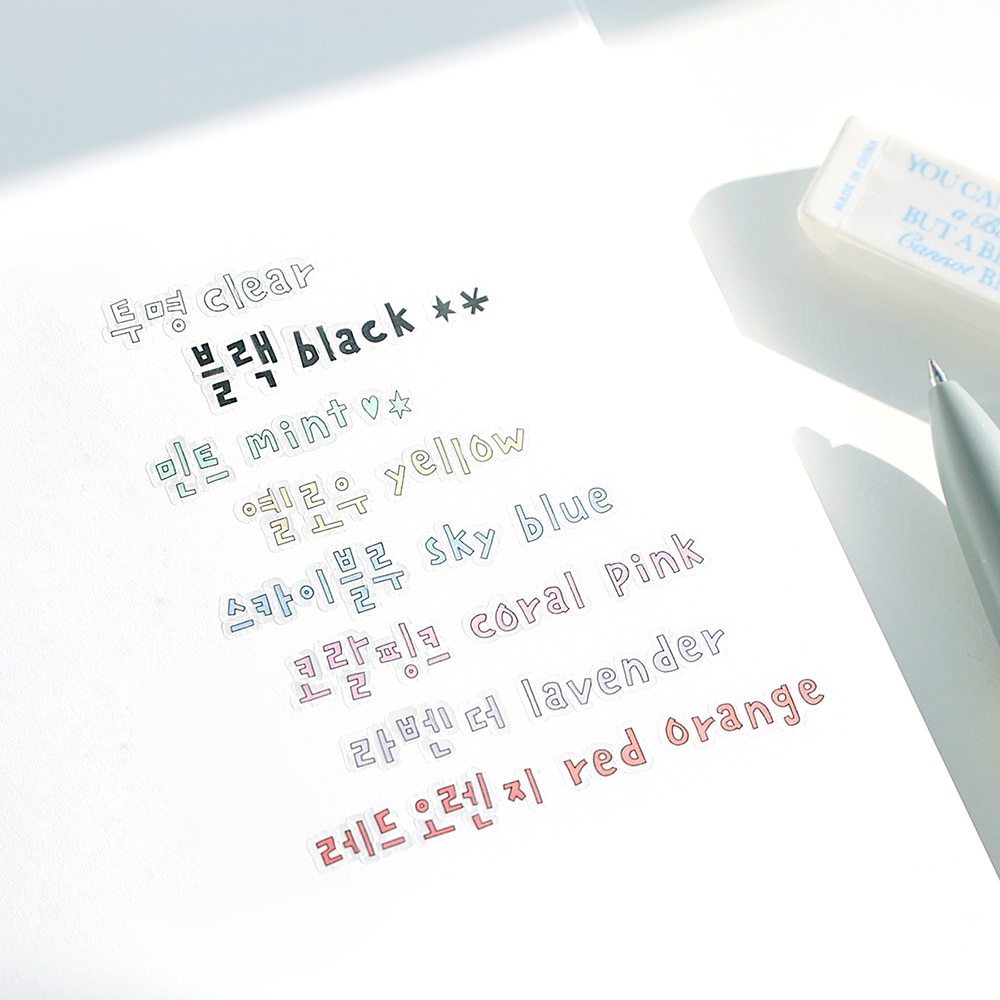 투명 clear
블랙 black **
민트 mint♡*
옐로우 yellow
스카이블루 sky blue
코랄핑크 coral pink
라벤더 lavender
레드오렌지 red orange
MADE IN CHINA
YOU CAN
a
BUT A
Cannot